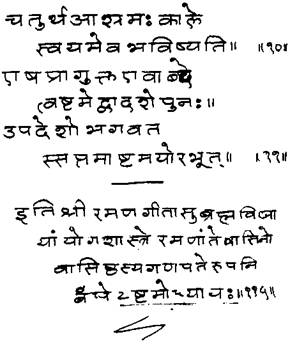 चतुर्थआश्रमः काले
स्वयमेव भविष्यति॥ ॥१०॥
एष प्रागुक्त एवाब्दे
त्वष्टमे द्वादशे पुनः॥
उपदेशो भगवत
स्सप्तमाष्टमयोरभूत्॥ ॥११॥
इति श्री रमणगीतासु ब्रह्मविद्या
यां योगशास्त्रे रमणांतेवासिनो
वासिष्ठस्य गणपतेरुपनि
अष्टमोध्यायः॥११५॥